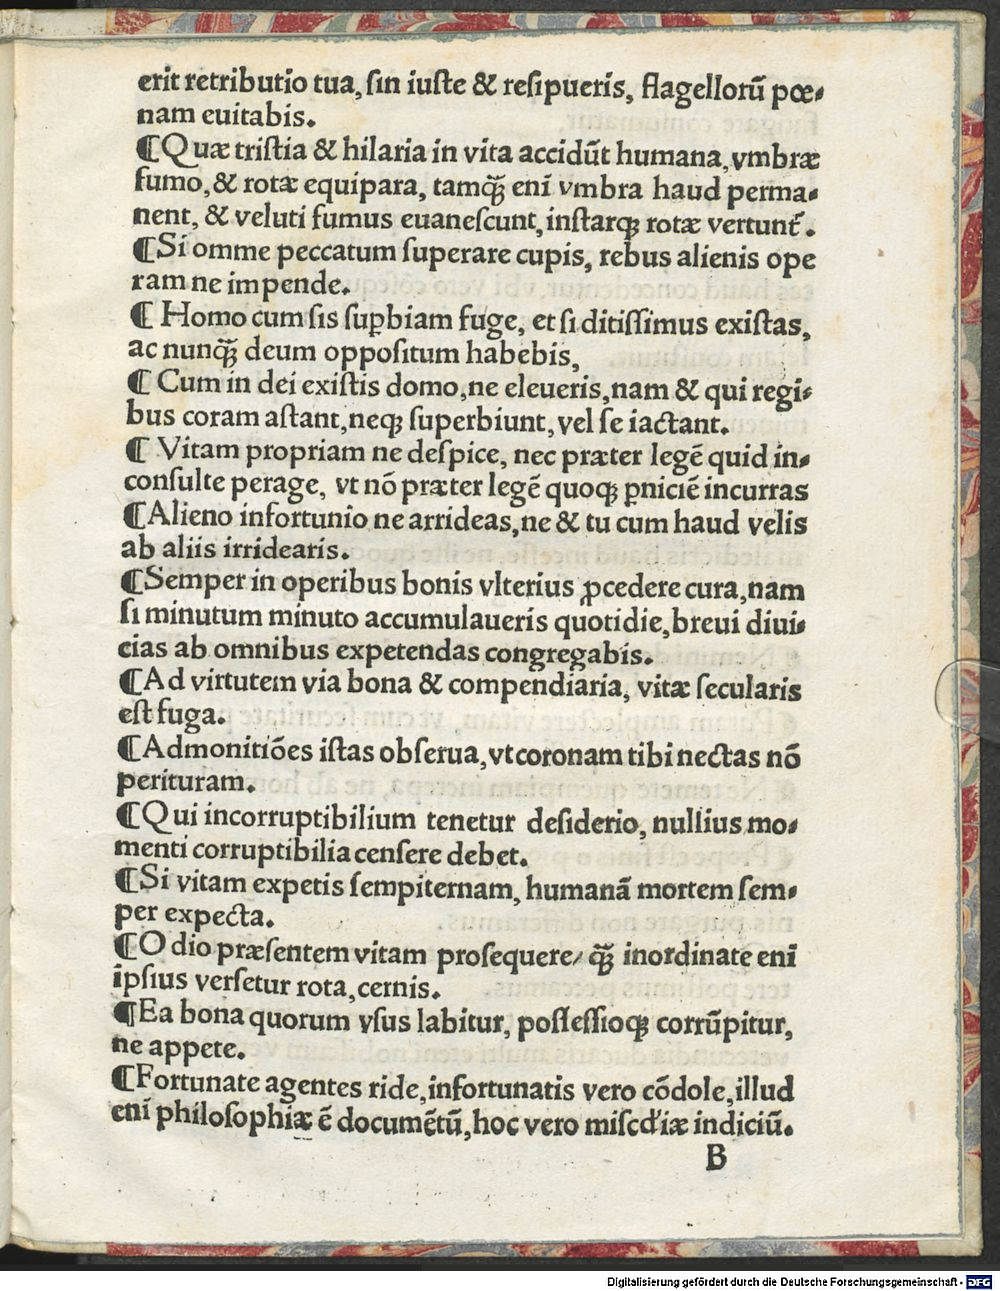 erit retributio tua, ſin iuſte & reſipueris, flagellorū pœ-
nam euitabis.
¶Quæ triſtia & hilaria in vita accidūt humana, vmbræ
fumo, & rotæ equipara, tamq̃ enī vmbra haud perma-
nent, & veluti fumus euaneſcunt, inſtarqꝫ rotæ vertunt̃.
¶Si omme peccatum ſuperare cupis, rebus alienis ope
ram ne impende.
¶ Homo cum ſis ſuꝑbiam fuge, et ſi ditiſſimus exiſtas,
ac nunq̃ deum oppoſitum habebis,
¶ Cum in dei exiſtis domo, ne eleueris, nam & qui regi-
bus coram aſtant, neqꝫ ſuperbiunt, vel ſe iactant.
¶ Vitam propriam ne deſpice, nec præter legē quid in-
conſulte perage, vt nō præter legē quoqꝫ ꝑniciē incurras
¶Alieno infortunio ne arrideas, ne & tu cum haud velis
ab aliis irridearis.
¶Semper in operibus bonis vlterius ꝓcedere cura, nam
ſi minutum minuto accumulaueris quotidie, breui diui-
cias ab omnibus expetendas congregabis.
¶Ad virtutem via bona & compendiaria, vitæ ſecularis
eſt fuga.
¶Admonitiōes iſtas obſerua, vt coronam tibi nectas nō
perituram.
¶Qui incorruptibilium tenetur deſiderio, nullius mo-
menti corruptibilia cenſere debet.
¶Si vitam expetis ſempiternam, humanā mortem ſem-
per expecta.
¶Odio præſentem vitam proſequere/ q̃ inordinate enī
ipſius verſetur rota, cernis.
¶Ea bona quorum yſus labitur, poſſeſſioqꝫ corrūpitur,
ne appete.
¶Fortunate agentes ride, infortunatis vero cōdole, illud
enī philoſophiæ ē documētū, hoc vero miſcd'iæ indiciū.
B
Digitalisierung gefördert durch die Deutsche Forschungsgemeinschaft - DFG